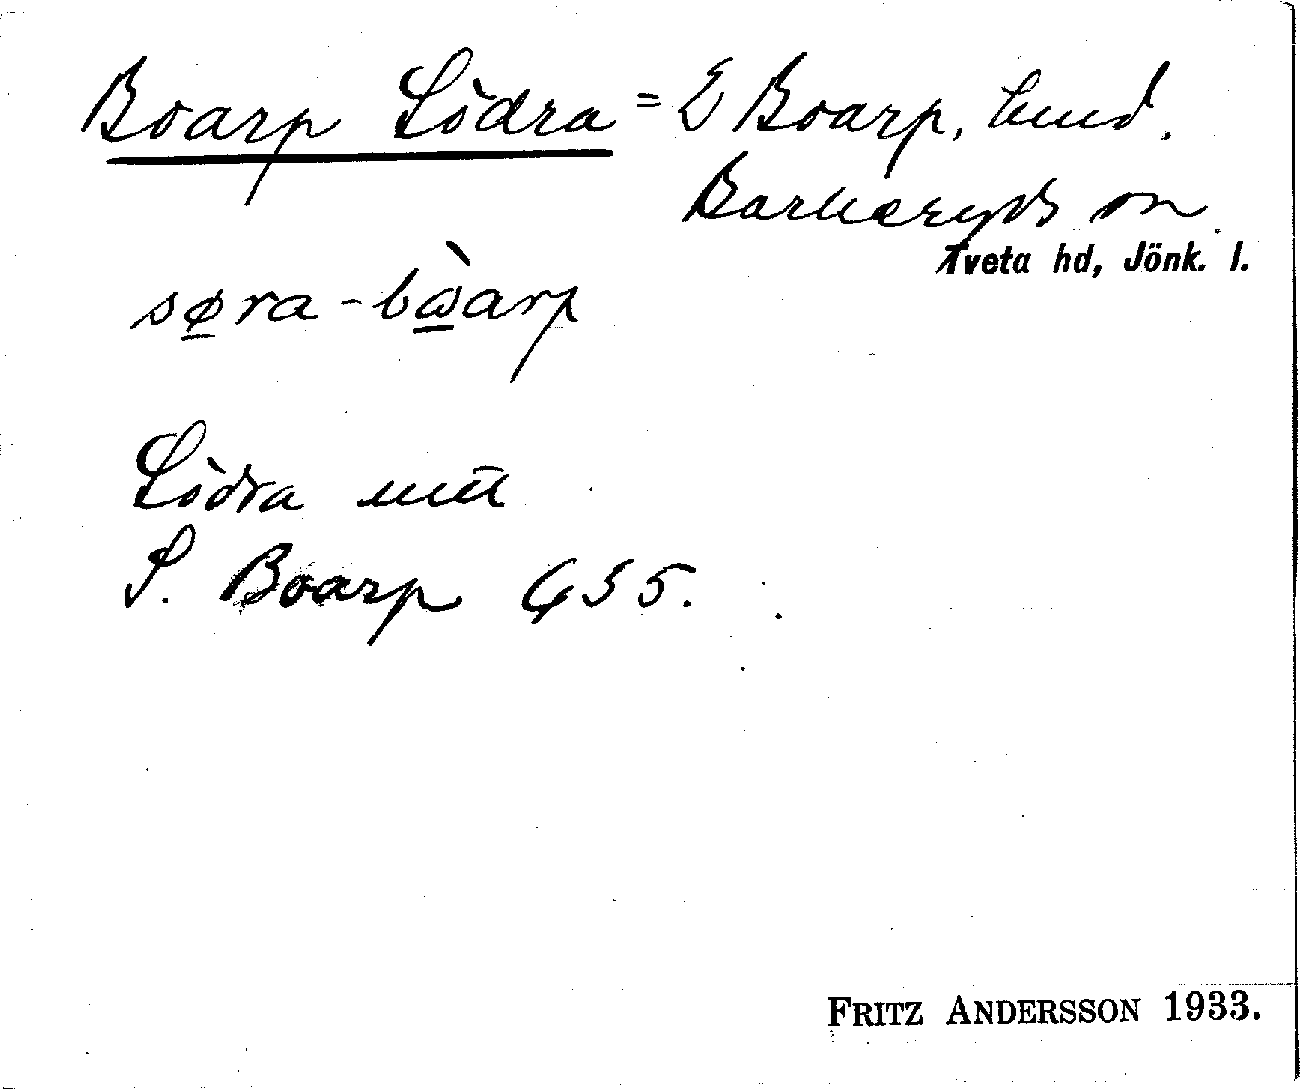 Boarp Södra = L Boarp, hmd.
Barkeryds sn
Tveta hd, Jönk. l.
søra - bòarp
Södra utt
S. Boarp G35.
FRITZ ANDERSSON 1933.